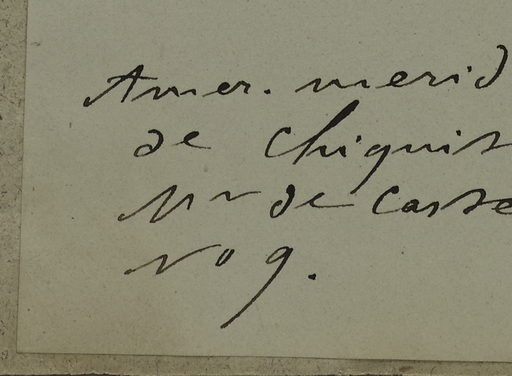 Amer. merid
de Chiquit
Mr de Caste
No 9.